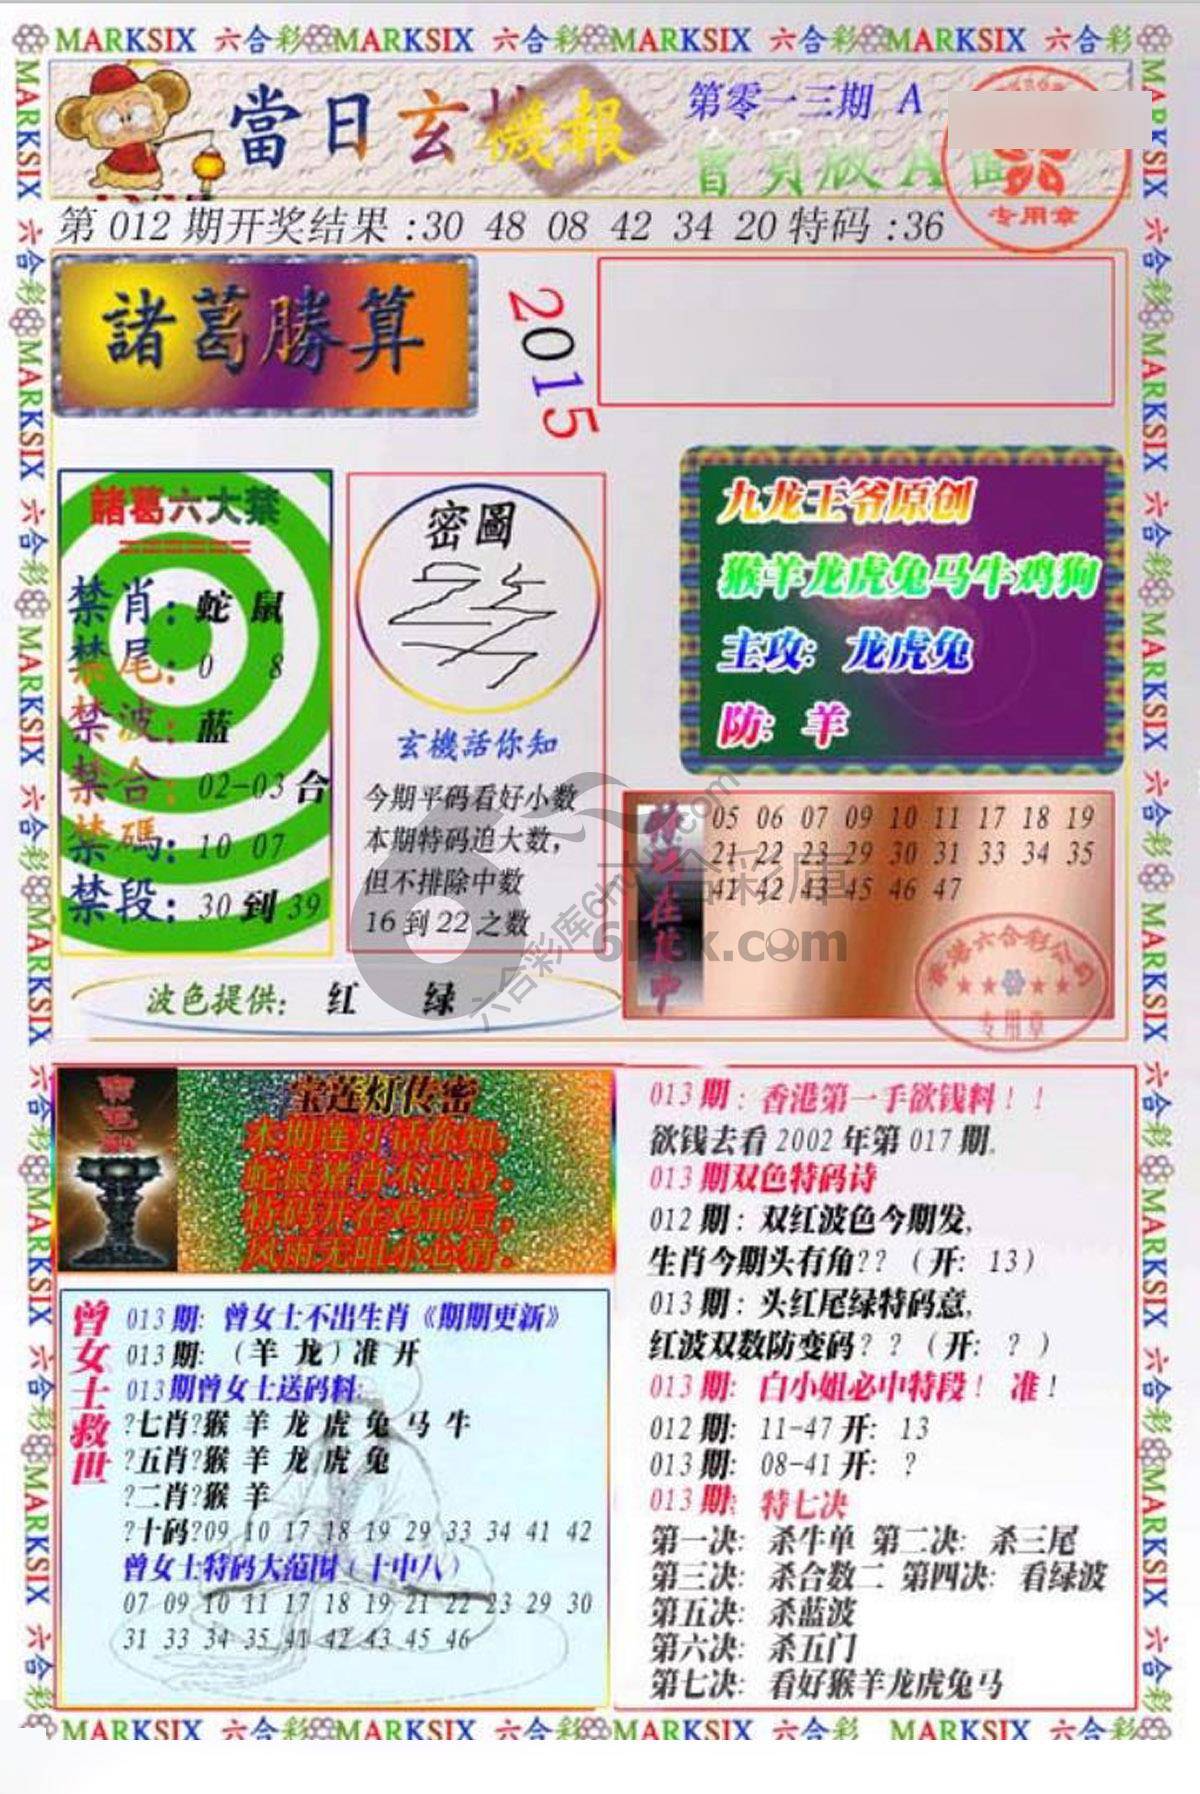 MARKSIX 六合彩 MARKSIX 六合彩 MARKSIX 六合彩 MARKSIX 六合彩
當日玄機報
第零一三期 A
會員版A面
专用章
第012期开奖结果:30 48 08 42 34 20特码:36
諸葛勝算
2015
諸葛六大禁
禁肖: 蛇 鼠
禁尾: 0 8
禁波: 蓝
禁合: 02-03合
禁碼: 10 07
禁段: 30到39
密圖
玄機話你知
今期平码看好小数
本期特码迫大数,
但不排除中数
16到22之数
九龙王爷原创
猴羊龙虎兔马牛鸡狗
主攻: 龙虎兔
防: 羊
05 06 07 09 10 11 17 18 19
21 22 23 29 30 31 33 34 35
41 42 43 45 46 47
香港六合彩公司
专用章
波色提供: 红 绿
六合彩库6hck.com
六合彩庫
6hck.com
宝莲灯传密
本期莲灯话你知,
蛇鼠猪肖不出特。
特码开在鸡前后,
风雨无阻小心猜。
曾女士救世
013期: 曾女士不出生肖《期期更新》
013期: (羊 龙) 准 开
013期曾女士送码料:
?七肖?猴 羊 龙 虎 兔 马 牛
?五肖?猴 羊 龙 虎 兔
?二肖?猴 羊
?十码?09 10 17 18 19 29 33 34 41 42
曾女士特码大范围(十中八)
07 09 10 11 17 18 19 21 22 23 29 30
31 33 34 35 41 42 43 45 46
013期: 香港第一手欲钱料!!
欲钱去看2002年第017期.
013期双色特码诗
012期: 双红波色今期发,
生肖今期头有角??(开: 13)
013期: 头红尾绿特码意,
红波双数防变码??(开: ?)
013期: 白小姐必中特段! 准!
012期: 11-47开: 13
013期: 08-41开: ?
013期: 特七决
第一决: 杀牛单 第二决: 杀三尾
第三决: 杀合数二 第四决: 看绿波
第五决: 杀蓝波
第六决: 杀五门
第七决: 看好猴羊龙虎兔马
MARKSIX 六合彩 MARKSIX 六合彩 MARKSIX 六合彩 MARKSIX